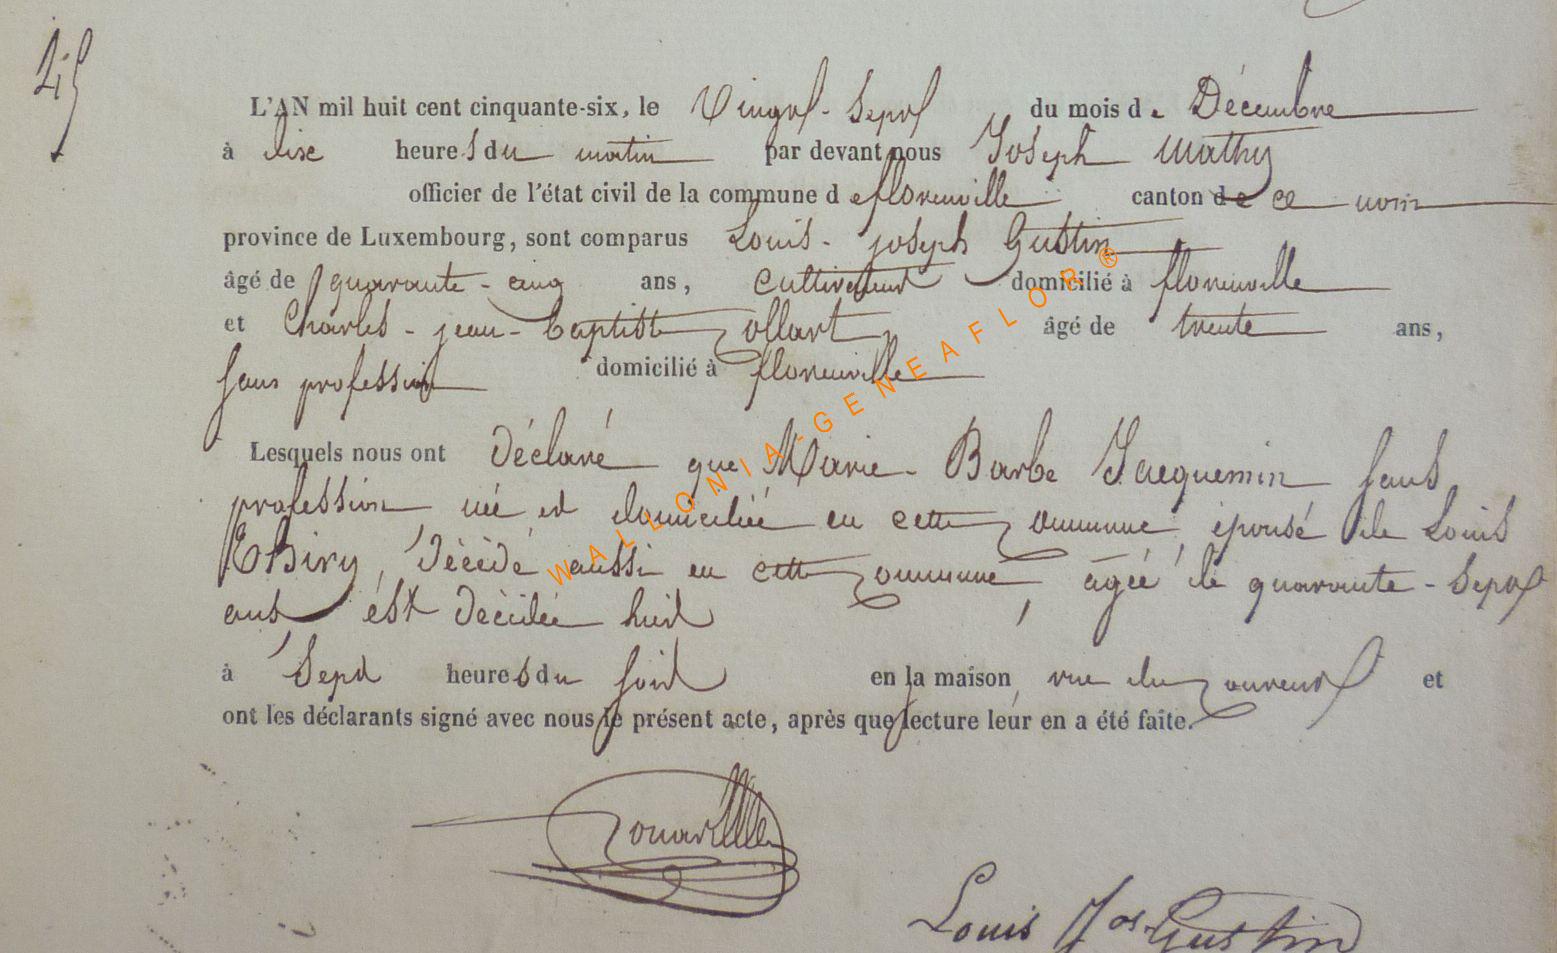 45
L'AN mil huit cent cinquante-six, le Vingt-Sept du mois de Décembre
à dix heures du matin par devant nous Joseph Mathy
officier de l'état civil de la commune de florenville canton de ce nom
province de Luxembourg, sont comparus Louis-joseph Gustin
âgé de quarante-cinq ans, cultivateur domicilié à florenville
et Charles-jean-baptiste Collart âgé de trente ans,
sans profession domicilié à florenville
Lesquels nous ont Déclaré que Marie-Barbe Jacquemin sans
profession née et domiciliée en cette commune, épouse de Louis
Thiry, Décédé aussi en cette commune, âgée de quarante-Sept
ans est décédée hier
à Sept heures du soir en la maison, rue du et
ont les déclarants signé avec nous le présent acte, après que lecture leur en a été faite.
WALLONIA-GENEAFLOR®
Louis Jos Gustin